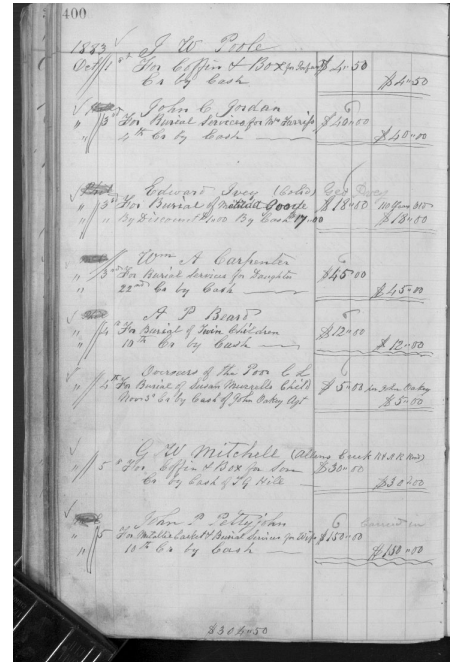 400
1883 J W Poole
Oct 1st For Coffin & Box for Infant $4.50
Cr by Cash $4.50
John C Jordan
" 3rd For Burial Services for Mr Farriss $40.00
4th Cr by Cash $40.00
Edward Ivey (Cold) Geo Ivey
" 3rd For Burial of $18.00
" " By Discount $1.00 By Cash 17.00 $18.00
Wm A Carpenter
" 3rd For Burial Services for Daughter $45.00
22nd Cr by Cash $45.00
A P Beard
" 4th For Burial of Twin Children $12.00
10th Cr by Cash $12.00
Overseers of the Poor C L
" 4th For Burial of Susan Murrells Child $5.00 for John Oakey
Nov 3rd Cr by Cash of John Oakey Agt $5.00
G W Mitchell (Allens Creek R & A R Road)
" 5th For Coffin & Box for Son $30.00
Cr by Cash of Hill $30.00
John P Pettyjohn
" 5 For Metallic Casket & Burial Services for Wife $150.00
10th Cr by Cash $150.00